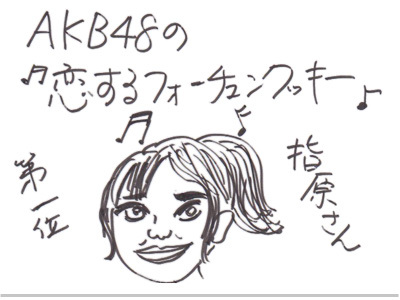 AKB48の
恋するフォーチュンクッキー
指原さん
第一位